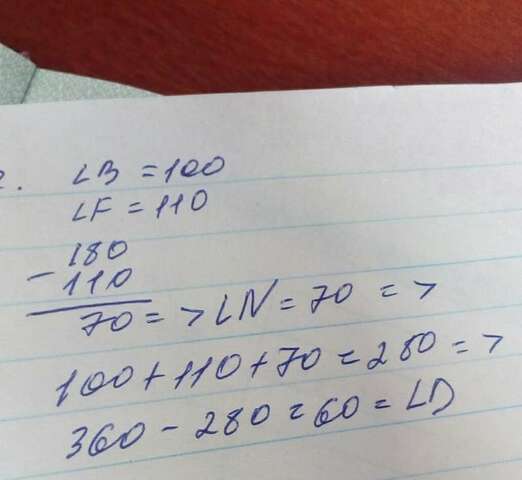 2. ∠B = 100
∠F = 110
180
- 110
70 = > ∠N = 70 = >
100 + 110 + 70 = 280 = >
360 - 280 = 60 = ∠D